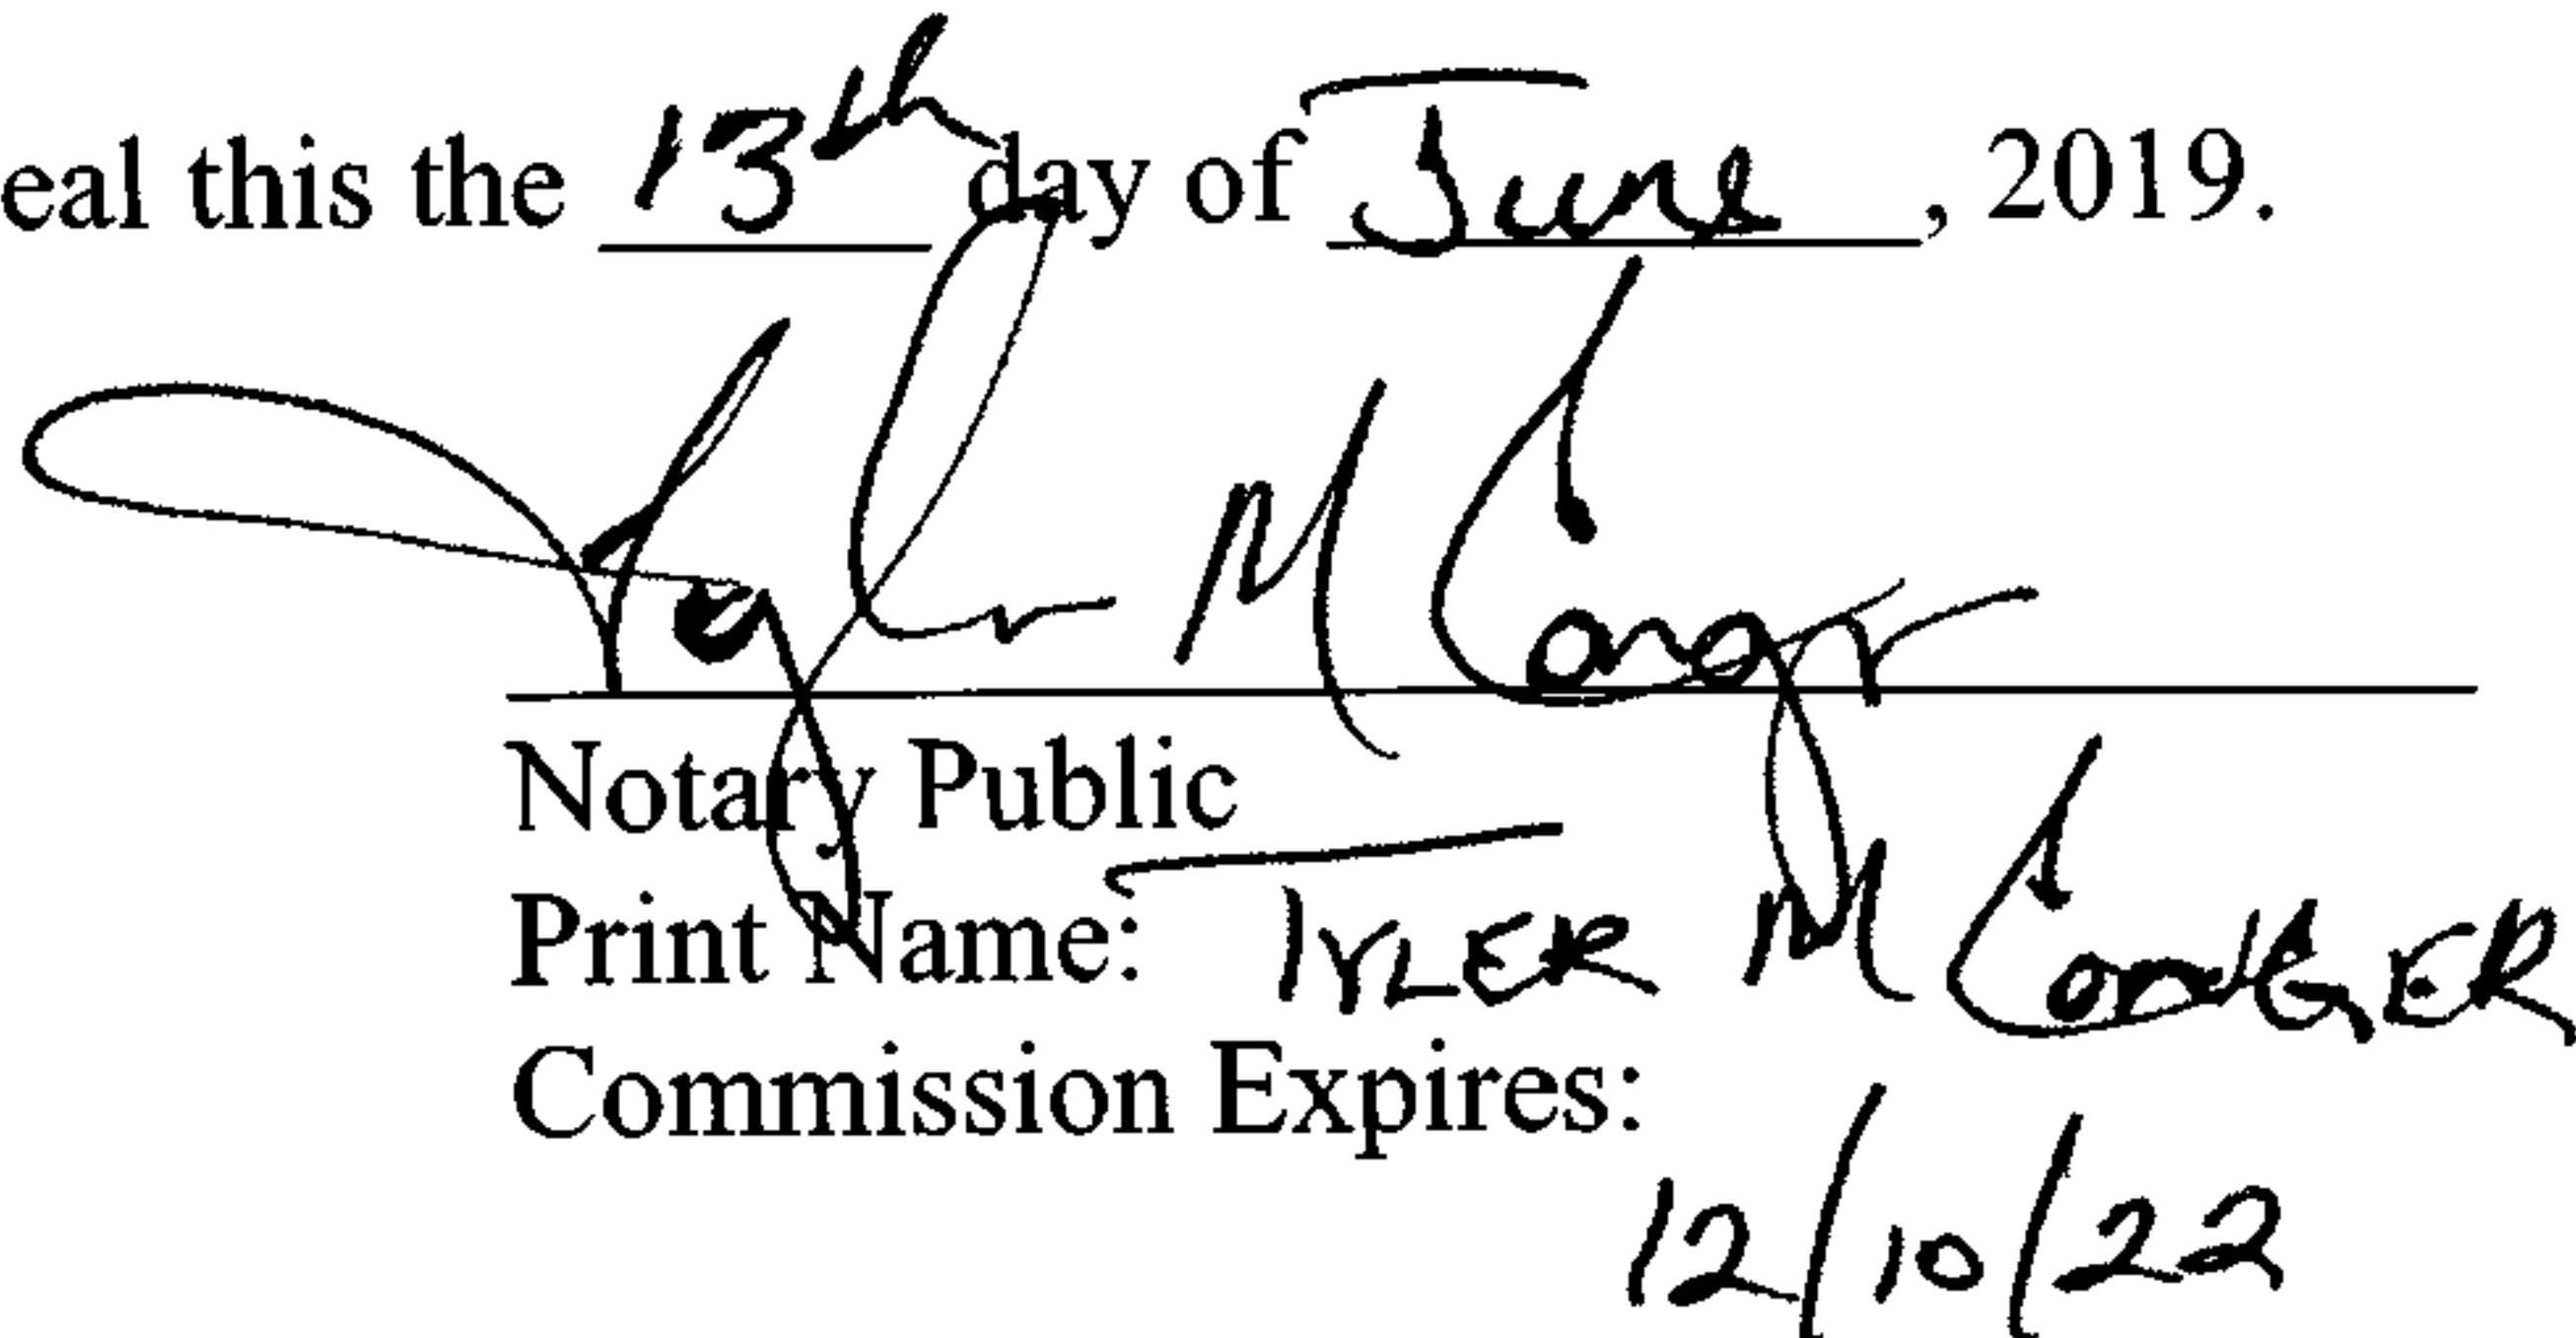 eal this the 13th day of June, 2019.
Tyler M Conger
Notary Public
Print Name: TYLER M CONGER
Commission Expires:
12/10/22